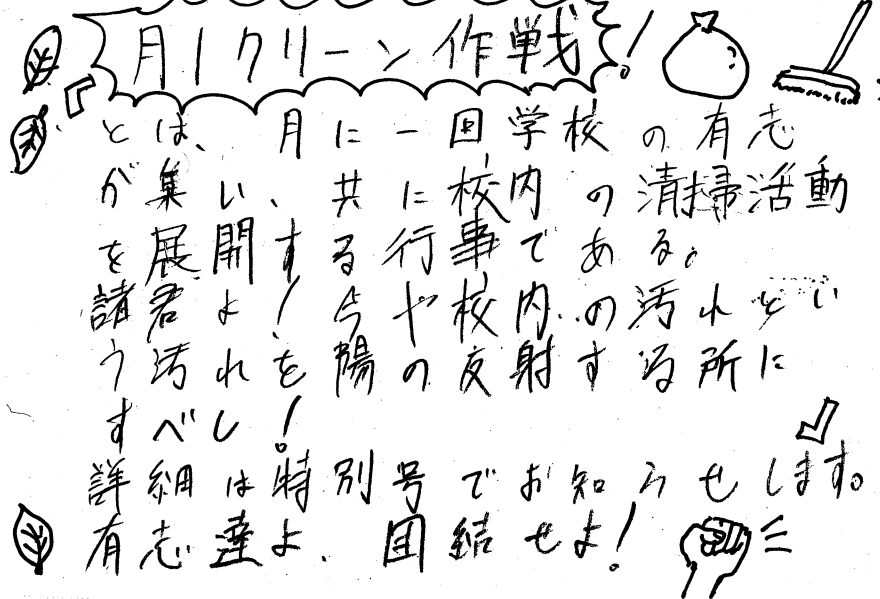 月1クリーン作戦!
とは、月に一回学校の有志
が集い、共に校内の清掃活動
を展開する行事である。
諸君よ!今や校内の汚れとい
う汚れを陽の反射する所に
すべし!
詳細は特別号でお知らせします。
有志達よ、団結せよ!